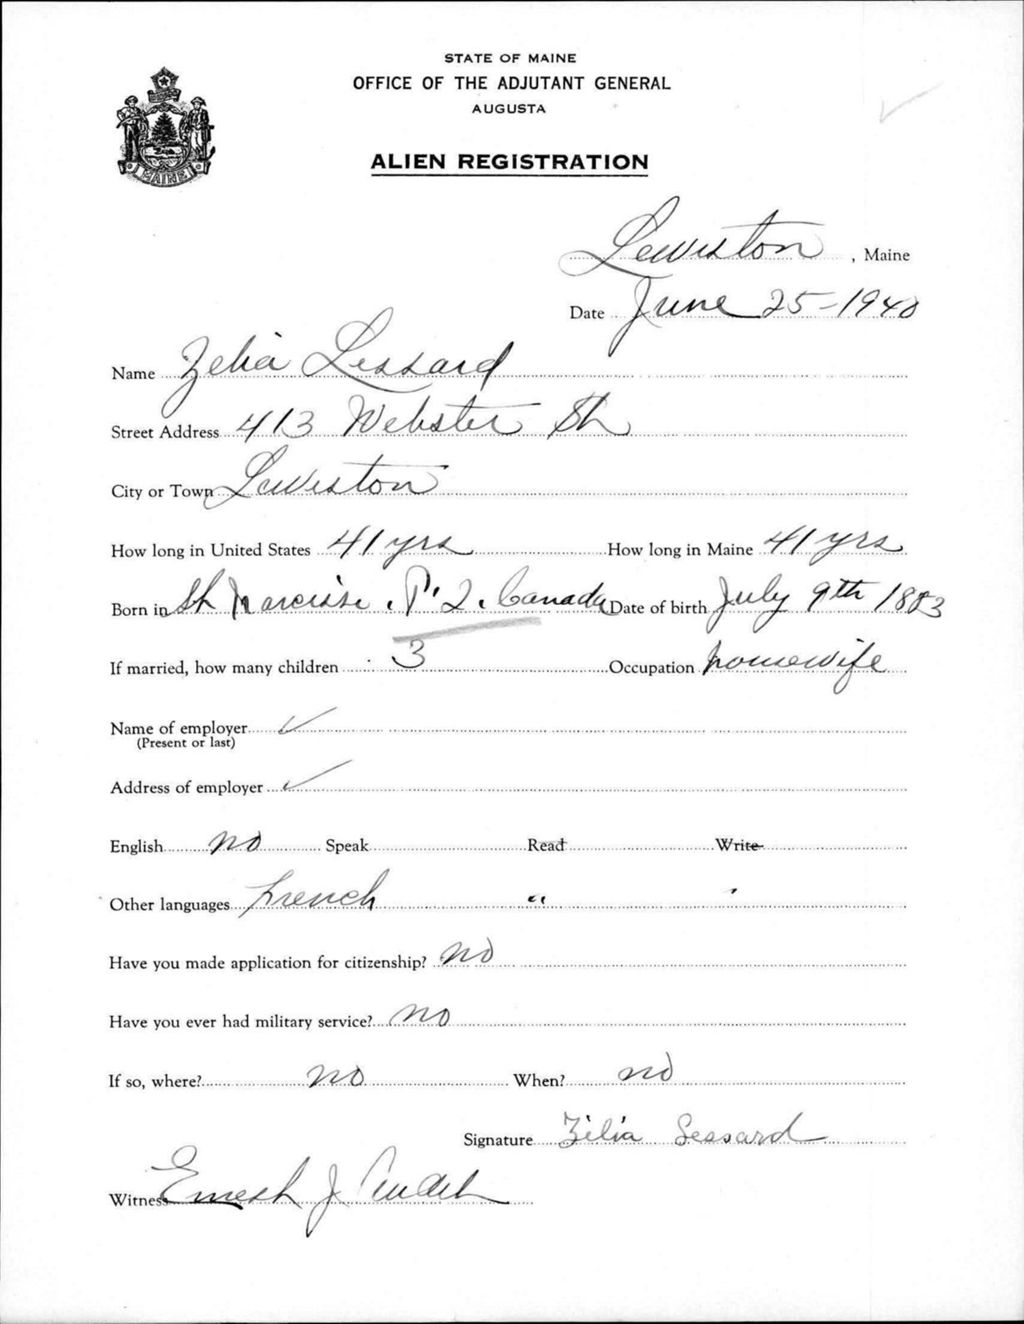 STATE OF MAINE
OFFICE OF THE ADJUTANT GENERAL
AUGUSTA
MAINE
ALIEN REGISTRATION
Lewiston, Maine
Date June 25-1940
Name Zelia Lessard
Street Address 413 Webster St
City or Town Lewiston
How long in United States 41 yrs How long in Maine 41 yrs
Born in St Narcisse. P.Q. Canada Date of birth July 9th 1883
If married, how many children 3 Occupation housewife
Name of employer ✓
(Present or last)
Address of employer ✓
English no Speak Read Write
Other languages French " "
Have you made application for citizenship? no
Have you ever had military service? no
If so, where? no When? no
Signature Zilia Lessard
Witness Ernest J